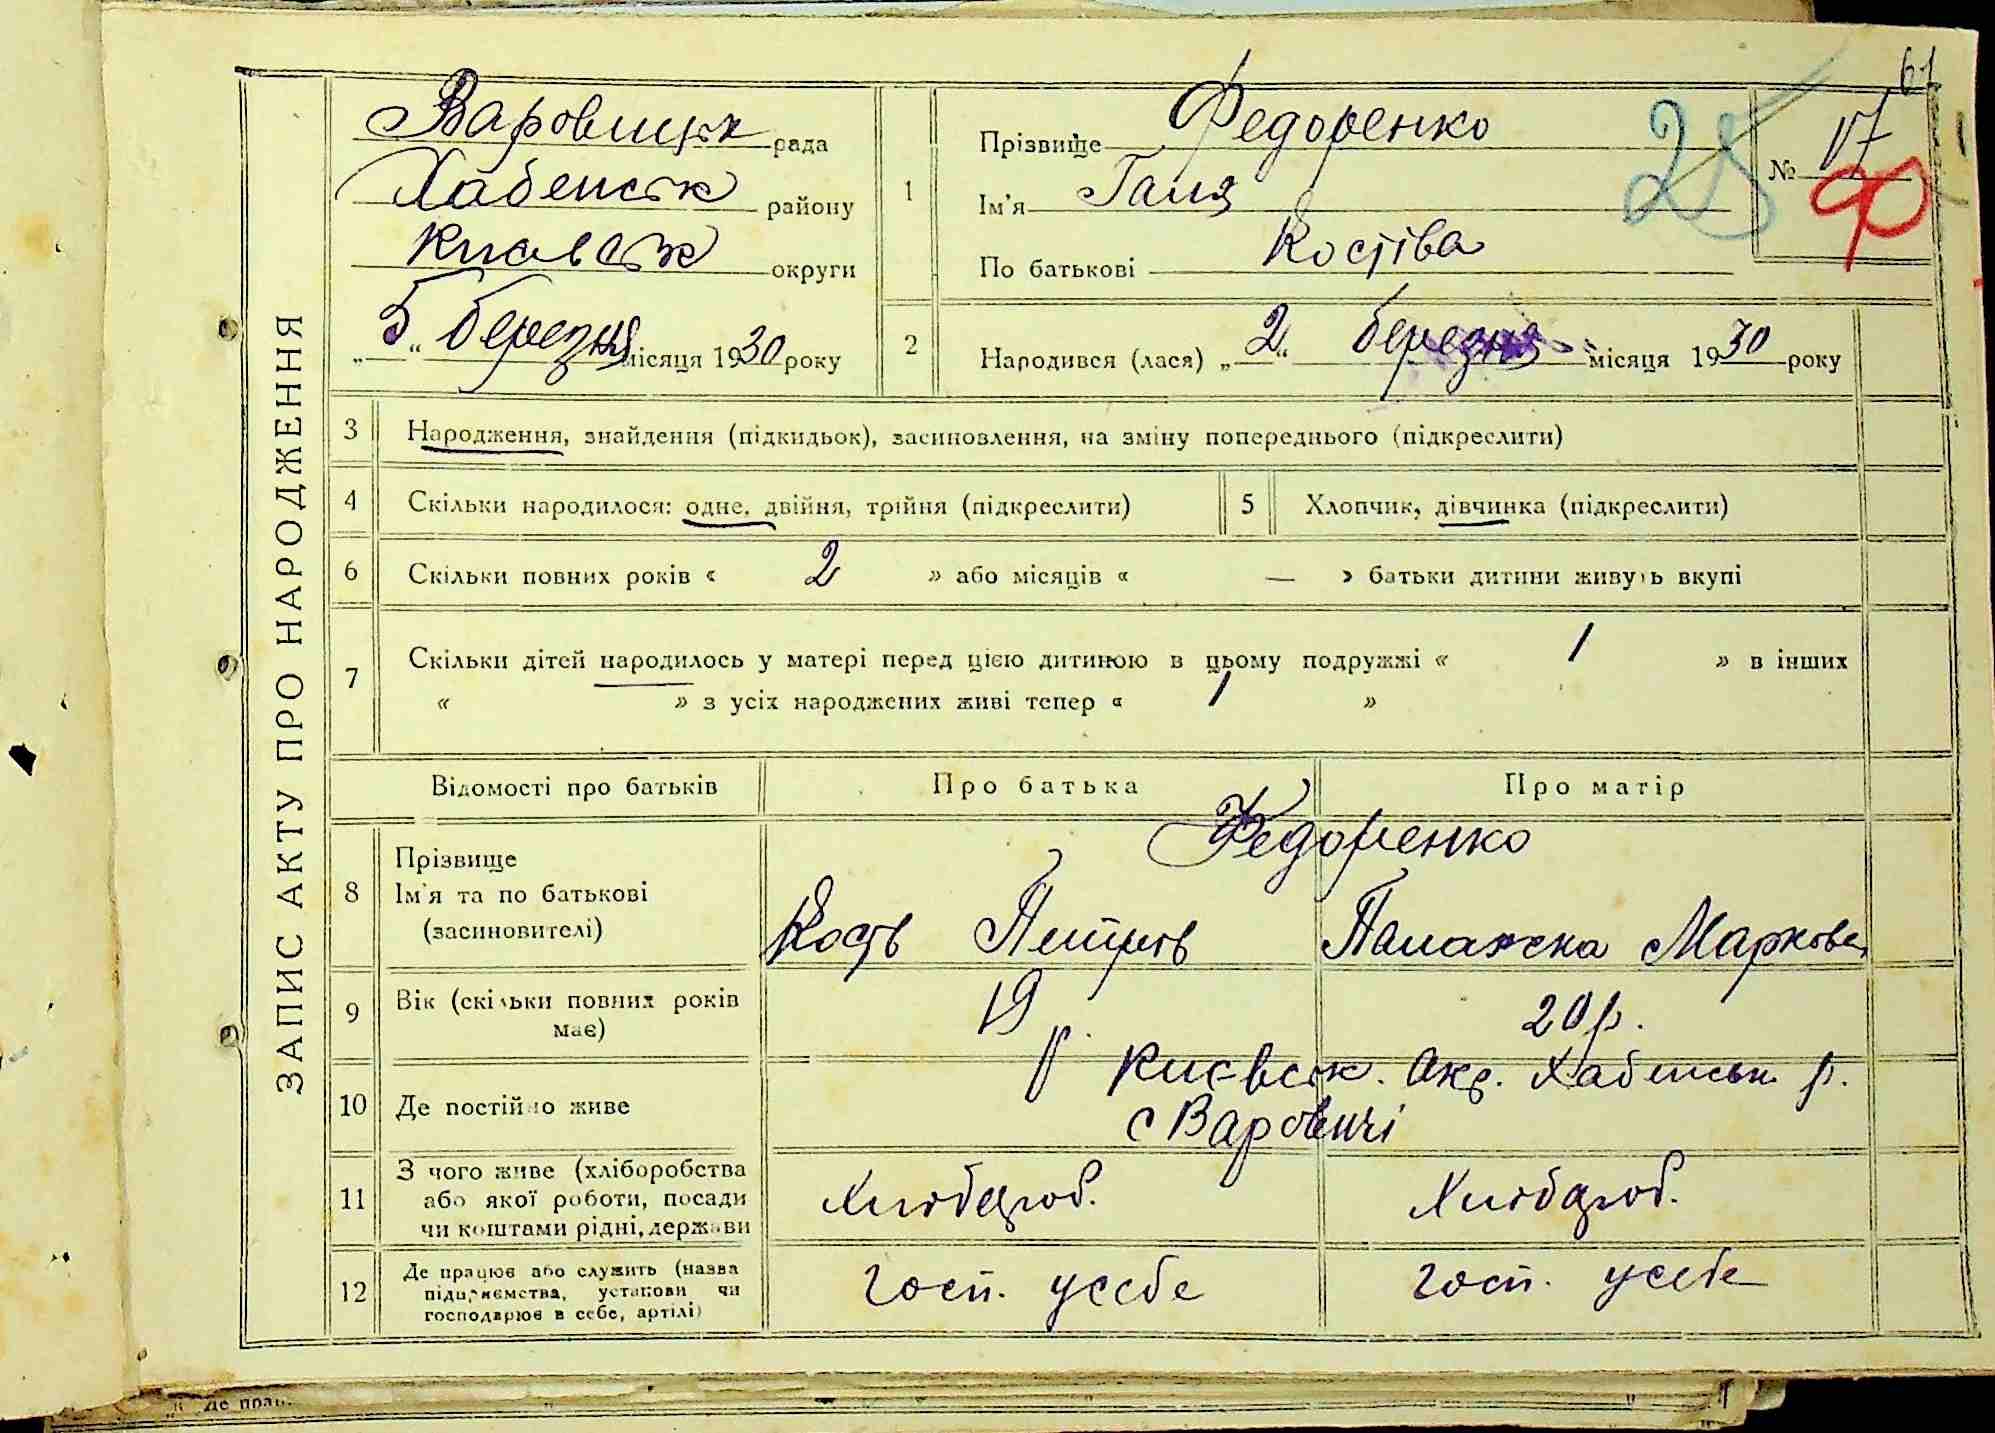 61
ЗАПИС АКТУ ПРО НАРОДЖЕННЯ
Варовицьк рада
Хабенськ району
Києвськ округи
„5“ березня місяця 1930 року
1
Прізвище Федоренко
Ім'я Галя
По батькові Костівa
28
№ 17
90
2
Народився (лася) „2“ березня місяця 1930 року
3 Народження, знайдення (підкидьок), засиновлення, на зміну попереднього (підкреслити)
4 Скільки народилося: одне, двійня, трійня (підкреслити) 5 Хлопчик, дівчинка (підкреслити)
6 Скільки повних років « 2 » або місяців « — » батьки дитини живуть вкупі
7 Скільки дітей народилось у матері перед цією дитиною в цьому подружжі « 1 » в інших
« » з усіх народжених живі тепер « 1 »
Відомості про батьків Про батька Про матір
8 Прізвище Федоренко
Ім'я та по батькові
(засиновителі) Кость Петров Палажка Маркова
9 Вік (скільки повних років має) 19 р. 20 р.
10 Де постійно живе Києвськ. Окр. Хабенськ р.
с Варовичі
11 З чого живе (хліборобства
або якої роботи, посади
чи коштами рідні, держави Хліборob. Хлібороб.
12 Де працює або служить (назва
підприємства, установи чи
господарює в себе, артілі) госп. усебе госп. усебе